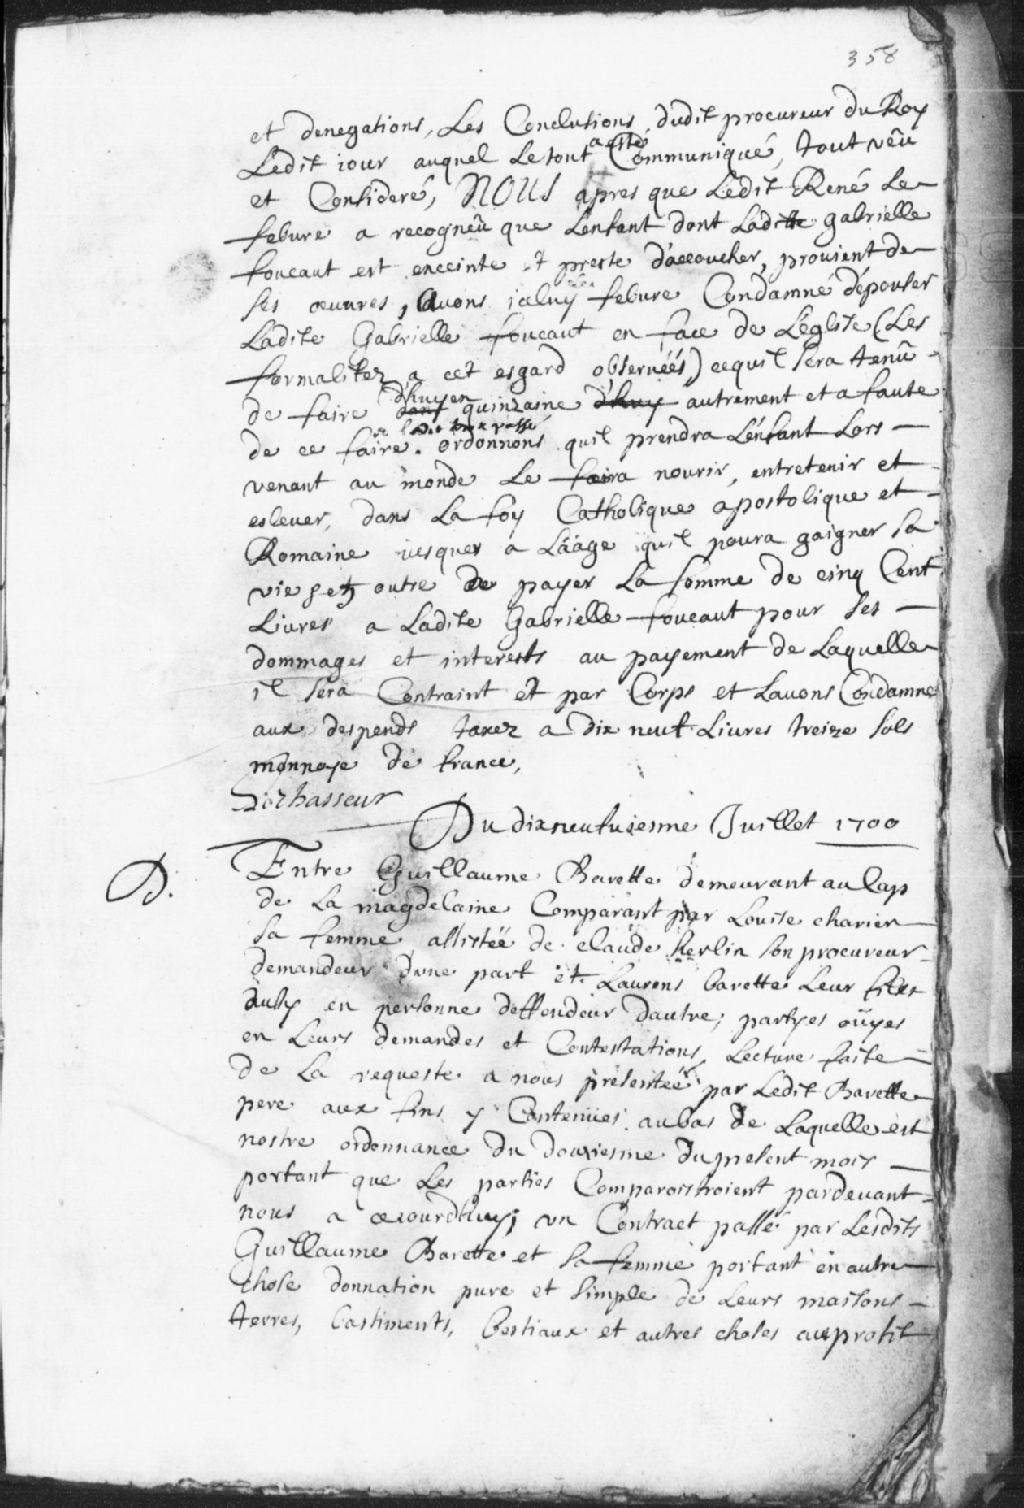 358
et denegations, Les Conclutions dudit procureur du Roy
Ledit iour auquel Le tout a esté Communiqué, tout veû
et Consideré, NOUS apres que Ledit René Le
febure a recogneu que L'enfant dont Ladite gabrielle
foucaut est enceinte et preste d'accoucher, prouient de
ses œuvres, Avons iceluy febure Condamné d'épouser
Ladite Gabrielle foucaut en face de L'eglise (Les
formalitez a cet esgard obseruéés) ce qu'il sera tenû
de faire d'huy en quinzaine d'huy autrement et a faute
de ce faire ordonnons qu'il prendra L'enfant Lors
venant au monde Le faira nourir, entretenir et
esleuer, dans La foy Catholique apostolique et
Romaine iusques a L'âage qu'il poura gaigner sa
vie, et outre de payer La somme de cinq Cent
Liures a Ladite Gabrielle foucaut pour ses
dommages et interests au payement de Laquelle
il sera Contraint et par Corps et L'auons Condamne
aux despends taxez a dix neuf Liures treize sols
monnoye de france,
Du dix neufuiesme Juillet 1700
Entre Guillaume Barette demeurant au Cap
de La magdelaine Comparant par Louise charier
sa femme assistéé de claude herlin son procureur
demandeur d'une part et Laurens barette Leur fils
aussy en personne deffendeur d'autre; partyes oüyes
en Leurs demandes et Contestations, Lecture faite
de La requeste a nous presentéé par Ledit Barette
pere aux fins y Contenües au bas de Laquelle est
nostre ordonnance du douziesme du present mois
portant que Les parties Comparoistroient pardeuant
nous a ceiourd'huy; un Contract passé par Lesdits
Guillaume Barette et sa femme portant en autre
chose donnation pure et simple de Leurs maisons
terres, bastiments, bestiaux et autres choses au profit
D.